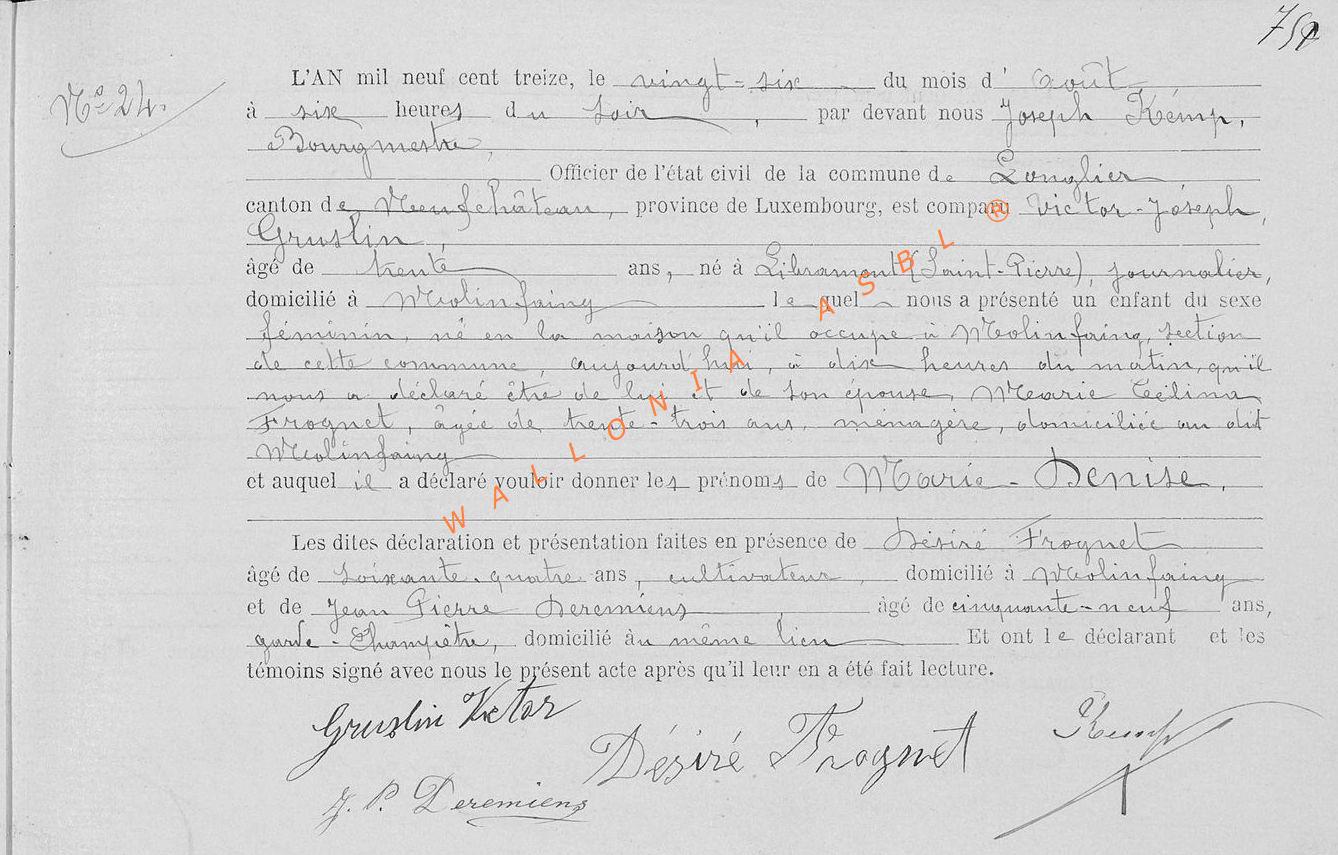 759
N° 24.
L'AN mil neuf cent treize, le vingt-six du mois d'Août
à six heures du soir, par devant nous Joseph Kemp,
Bourgmestre,
Officier de l'état civil de la commune de Longlier,
canton de Neufchâteau, province de Luxembourg, est comparu Victor-Joseph,
Gruslin,
âgé de trente ans, né à Libramont (Saint-Pierre), journalier,
domicilié à Molinfaing lequel nous a présenté un enfant du sexe
féminin, né en la maison qu'il occupe à Molinfaing, section
de cette commune, aujourd'hui, à dix heures du matin, qu'il
nous a déclaré être de lui et de son épouse, Marie Célina
Frognet, âgée de trente-trois ans, ménagère, domiciliée au dit
Molinfaing
et auquel il a déclaré vouloir donner les prénoms de Marie-Denise,
Les dites déclaration et présentation faites en présence de Désiré Frognet
âgé de soixante-quatre ans, cultivateur, domicilié à Molinfaing
et de Jean Pierre Deremiens, âgé de cinquante-neuf ans,
garde-Champêtre, domicilié au même lieu Et ont le déclarant et les
témoins signé avec nous le présent acte après qu'il leur en a été fait lecture.
Gruslin Victor
Désiré Frognet
Kemp
J. P. Deremiens
WALLONIA ASBL ®